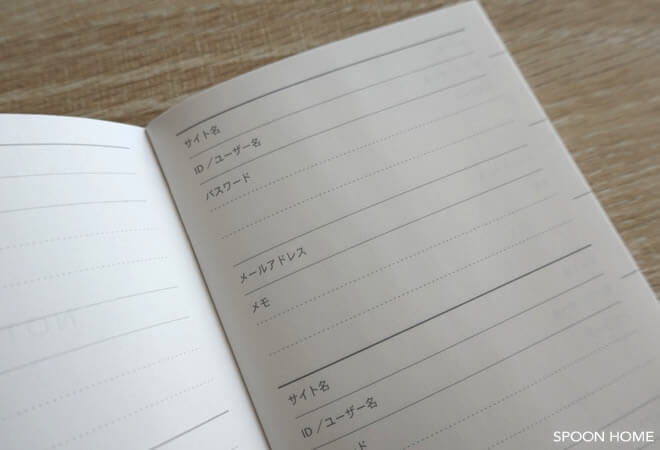 サイト名
ID／ユーザー名
パスワード
メールアドレス
メモ
サイト名
ID／ユーザー名
ード
SPOON HOME